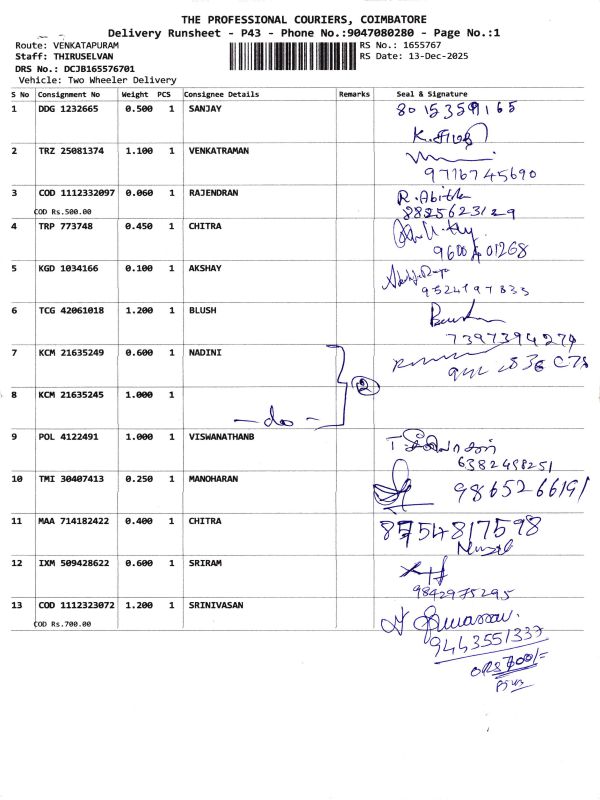 THE PROFESSIONAL COURIERS, COIMBATORE
Delivery Runsheet - P43 - Phone No.:9047080280 - Page No.:1
Route: VENKATAPURAM RS No.: 1655767
Staff: THIRUSELVAN RS Date: 13-Dec-2025
DRS No.: DCJB165576701
Vehicle: Two Wheeler Delivery
S No Consignment No Weight PCS Consignee Details Remarks Seal & Signature
1 DDG 1232665 0.500 1 SANJAY 8015359165
2 TRZ 25081374 1.100 1 VENKATRAMAN
9716745690
3 COD 1112332097 0.060 1 RAJENDRAN R.Abitha
COD Rs.500.00 8825623129
4 TRP 773748 0.450 1 CHITRA
5 KGD 1034166 0.100 1 AKSHAY
6 TCG 42061018 1.200 1 BLUSH
7397394274
7 KCM 21635249 0.600 1 NADINI
8 KCM 21635245 1.000 1 2
- do -
9 POL 4122491 1.000 1 VISWANATHANB
6382498251
10 TMI 30407413 0.250 1 MANOHARAN 9865266191
11 MAA 714182422 0.400 1 CHITRA 8754817598
12 IXM 509428622 0.600 1 SRIRAM
9842975295
13 COD 1112323072 1.200 1 SRINIVASAN
COD Rs.700.00
9443551337